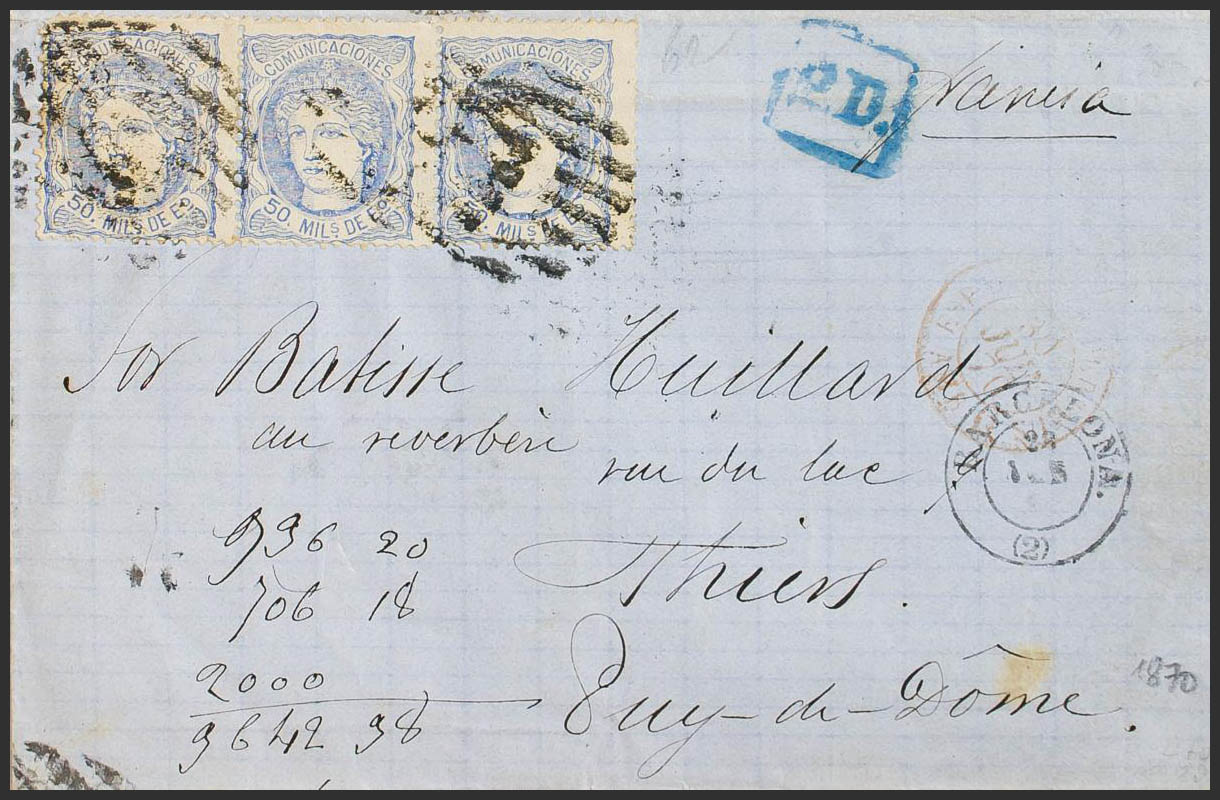 COMUNICACIONES COMUNICACIONES COMUNICACIONES
50. MILS DE Eº. 50. MILS DE Eº. 50. MILS DE Eº.
P.D.
Francia
Sor Batisse Huillard
au reverbère
rue du lac
BARCELONA.
(2)
936 20
706 18
2000
3642 38
Thiers.
Puy-de-Dôme.
1870